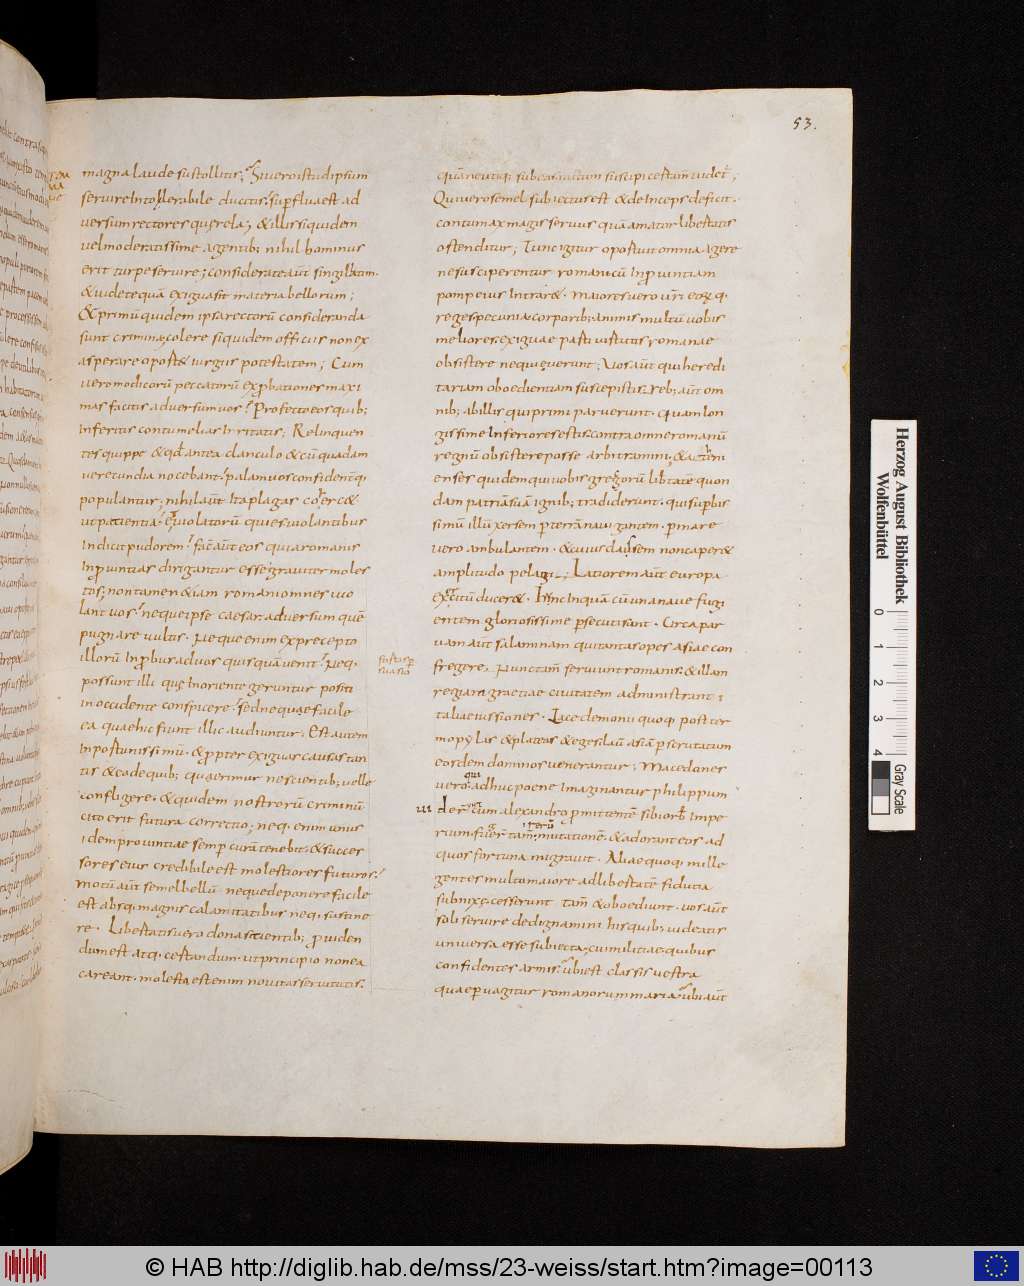 53.
magna laude sustollitis; Si vero istud ipsum
servire intollerabile ducitis. superflua est ad
versum rectores querela; & illis siquidem
vel moderatissime agentib; nihil hominus
erit turpe servire; considerate aut̄ singillatim.
& videte quā exigua sit materia bellorum;
& primū quidem ipsa rectorū consideranda
sunt crimina; colere siquidem officiis non ex
asperare oport& iurgiis potestatem; Cum
vero modicorū peccatorū exprobationes maxi
mas facitis adversum vos. Profecto eos quib;
inferitis contumelias irritatis; Relinquen
tes quippe & qđ antea clanculo & cū quadam
verecundia nocebant. palam vos confidenti q;
populantur; nihil aut̄ ita plagas coherc&
ut patientia. & violatorū quies violantibus
indicit pudorem. fac aut̄ eos qui a romanis
in provintias diriguntur esse graviter moles
tos; non tamen & iam romani omnes vio
lant vos. neque ipse caesar. adversum quē
pugnare vultis. neque enim ex precepto
illorū improbus ad vos quisquā venit. neq;
possunt illi quę in oriente geruntur positi
in occidente conspicere. sed neque facile
ea quae hic fiunt illic audiuntur. Est autem
inportunissimū. & propter exiguas causas tan
tis & eadequib; quaerimur nescientib; velle
confligere. & quidem nostrorū criminū
cito erit futura correctio; neq. enim unus
idem provintiae semper curā tenebit. & succes
sores eius credibile est molestiores futuros.
Motū aut̄ semel bellū neque deponere facile
est absq; magnis calamitatibus neq; sustine
re. Libertatis vero dona sitientib; providen
dum est atq; certandum. ut principio non ea
careant. molesta est enim novitas servitutis.
fortis per
suasio
Qui vero semel subiectus est & deinceps deficit.
contumax magis servus quā amator libertatis
ostenditur; Tunc igitur oportuit omnia agere
ne susciperentur romani cū in provintiam
pompeius intrar&. Maiores vero vr̄i eorūq.
reges pecunia & corporib; animis multū vobis
meliores. exiguae parti virtutis romanae
obsistere nequiverunt; Vos aut̄ qui heredi
tariam oboedientiam suscepistis. reb; aut̄ om
nib; ab illis qui primi paruerunt. quam lon
gissime inferiores estis. contra omne romanū
regnū obsistere posse arbitramini; & atheni
enses quidem qui vobis grecorū libertate quon
dam patriā suā ignib; tradiderunt. qui superbis
simū illū xersem per terrā navigantem. per mare
vero ambulantem. & cuius classem non caper&
amplitudo pelagi; Latiorem aut̄ europa
exercitū ducer&. Hinc inquā cū una nave fugi
entem gloriosissime persecuti sunt. Circa par
vam aut̄ salaminam qui tantas opes asiae con
fregere, Nunc tam̄ serviunt romanis. & illam
regiam graetiae civitatem administrant i
taliae iussiones. Lacedemonii quoq; post ter
mopylas & plateas & egesilaū asiā perscrutatum
eosdem dominos venerantur; Macedones
vero qui adhuc poene imaginantur philippum
iii
derer̄ cum alexandro promittentē sibi orbis impe
rium. ferer̄ tam̄ iterū mutationē. & adorant eos ad
quos fortuna migravit. Aliae quoq; mille
gentes multo maiore ad libertatē fidutia
subnixę. cesserunt tam̄ & oboediunt. vos aut̄
soli servire dedignamini his quib; videatis
universa esse subiecta; cui militiae. quibus
confidentes armis. ubi est classis vestra
quae pervagitur romanorum maria. ubi aut̄
Herzog August Bibliothek
Wolfenbüttel
0 1 2 3 4
Gray Scale
© HAB http://diglib.hab.de/mss/23-weiss/start.htm?image=00113